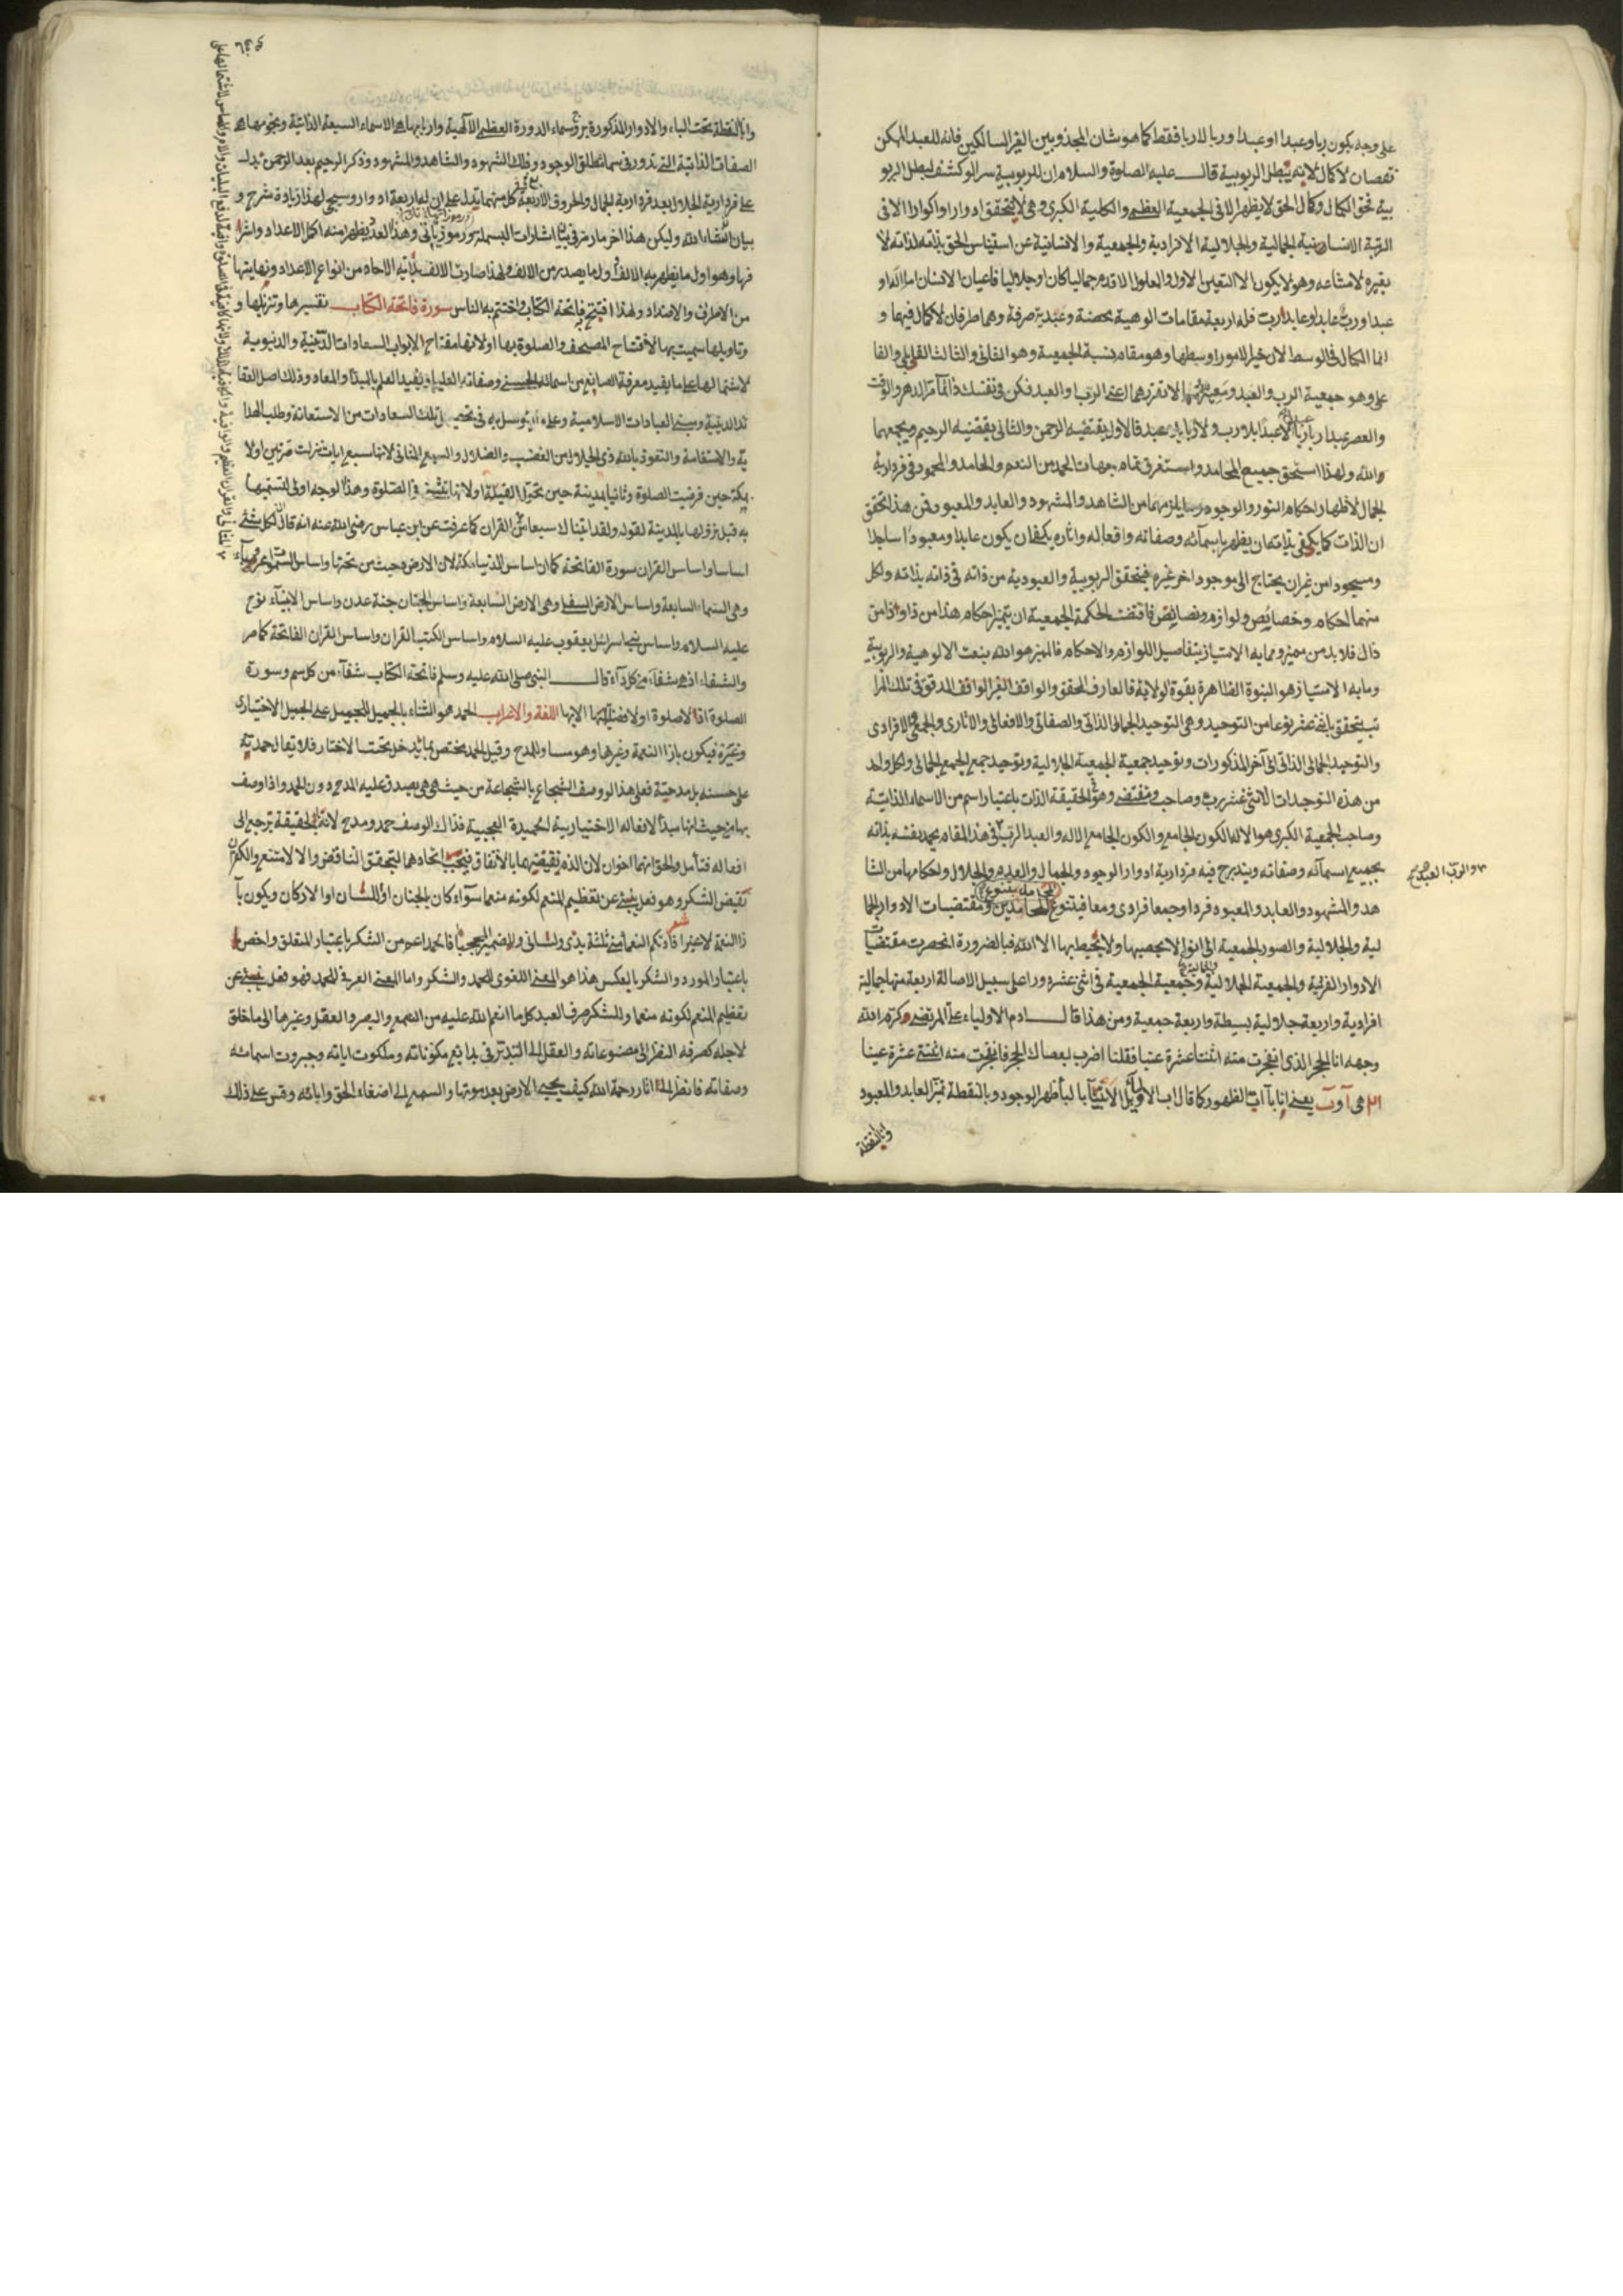 على وجه يكون ربا وعبدا او عبدا وربا لا ربا فقط كما هو شان المجذوبين الغير السالكين فانه للعبد الممكن
نقصان لا كمال لانه يبطل الربوبية قال عليه الصلوة والسلام ان للربوبية سر لو كشف لبطل الربو
بية نحق الكمال وكمال الحق لا يظهر الا في الجمعية العظمى والكلية الكبرى وهى لا يتحقق ادوارا واكوارا الا فى
الرتبة الانسانية الجمالية والجلالية الافرادية والجمعية والانسانية عن استيناس الحق بذاته لذاته لا
بغيره لامتناعه وهو لا يكون الا التعين الاول والمعلول الاقدم جماليا كان او جلاليا فاعيان الانسان
عبد ورب عابد او عابد ورب فله اربعة مقامات الوهية محضة وعبدية صرفة وهما طرفان لا كمال فيهما و
انما الكمال فى الوسط لان خير الامور اوسطها وهو مقام نسبة الجمعية وهو الثانى والثالث
على وهو جمعية الرب والعبد الرب والعبد فكن فى نفسك دائما الدهر والوقت
والعصر عبدا ربا لا عبدا بلا رب ولا ربا بلا عبد فالاول يقتضيه الرحمن والثانى يقتضيه الرحيم ويجمعهما
الله ولهذا استحق جميع المحامد واستغرق تمام جهات الحمد من النعم والحامد والمحمود فى فردارية
الجمال لاظهار احكام النور والوجود وما يلزمهما من الشاهد والمشهود والعابد والمعبود فمن هذا تحقق
ان الذات كما يكفى بذاته ان يظهر باسمائه وصفاته وافعاله واثاره يكفى ان يكون عابدا ومعبودا ساجدا
ومسجودا من غير ان يحتاج الى موجود اخر غيره فيتحقق الربوبية والعبودية من ذاته فى ذاته بذاته ولكل
منهما احكام وخصايص ولوازم ونصايص فاقتضت الحكمة الجمعية ان يتميز احكام هذا من ذا وذا من
ذاك فلا بد من مميز ومما به الامتياز بتفاصيل اللوازم والاحكام فالمميز هو الله بنعت الالوهية والربوبية
وما به الامتياز هو النبوة الظاهرة بقوة الولاية فالعارف المحقق والواقف الغير الواقف المدقق فى تلك المرا
تب يتحقق باثنى عشر نوعا من التوحيد وهى التوحيد الجمالى الذاتى والصفاتى والافعالى والاثارى والجمعى الافرادى
والتوحيد الجلالى الذاتى الى آخر المذكورات وتوحيد جمعية الجمعية الجلالية وتوحيد جمع الجمع الجمالى ولكل واحد
من هذه التوحيدات الاثنى عشر رب وصاحب ومقتضى وهو الحقيقة الذات باعتبار اسم من الاسماء الذاتية
وصاحب الجمعية الكبرى هو الاله الكون الجامع والكون الجامع الاله والعبد الرب فى هذا المقام يحمد نفسه بذاته
بجميع اسمائه وصفاته ويندرج فيه فردارية ادوار الوجود والجمال والعدم والجلال واحكامها من الشا
والرب العبد صح
هد والمشهود والعابد والمعبود فردا وجمعا فرادى ومعا فيتنوع المحامد بتنوع الحامدين ومقتضيات الادوار الجما
لية والجلالية والصور الجمعية الى انواع لا يحصيها ولا يحيط بها الا الله فبالضرورة انحصرت مقتضيات
الادوار الفردية والجمعية الجلالية والجمالية وجمعية الجمعية فى اثنى عشر دورا على سبيل الاصالة اربعة منها جمالية
افرادية واربعة جلالية بسيطة واربعة جمعية ومن هذا قال ادم الاولياء على المرتضى كرم الله
وجهه انا الحجر الذى انفجرت منه اثنتا عشرة عينا فقلنا اضرب بعصاك الحجر فانفجرت منه اثنتى عشرة عينا
هى آ وب يعنى انا بآ اب الظهور كما قال اب الاولياء بالبأ ظهر الوجود وبالنقطة تميز العابد والمعبود
وانا النقطة
وانا النقطة تحت الباء والادوار المذكورة بروج سماء الدورة العظمى الالهية واربابها هى الاسماء السبعة الذاتية ونجومها هى
الصفات الذاتية التى تدور فى سماء مطلق الوجود وفلك الشهود والشاهد والمشهود وذكر الرحيم بعد الرحمن يدل
على فردارية الجلال بعد فردارية الجمال والحروف الاربعة كل منهما يدل على ان لها اربعة ادوار وسيجى لهذا زيادة شرح و
بيان انشاء الله وليكن هذا اخر ما رمز فى بيان اشارات البسملة وهذا العدد يظهر منه اكمل الاعداد واشرا
فها وهو اول ما يظهر به الالف ولما يصدر من الالف لهذا صارت الالف بذاته الاحاد من انواع الاعداد ونهايتها
من الاطراف والامتداد ولهذا افتتح فاتحة الكتاب واختتم به الناس سورة فاتحة الكتاب تفسيرها وتنزيلها و
وتاويلها سميت بها لافتتاح المصحف والصلوة بها او لانها مفتاح الابواب السعادات الدينية والدنيوية
لاشتمالها على ما يفيد معرفة الصانع من اسمائه الحسنى وصفاته العليا ويفيد العلم بالمبدأ والمعاد وذلك اصل العقا
ئد الدينية ومبنى العبادات الاسلامية وعلى ما يتوسل به فى تحصيل تلك السعادات من الاستعانة وطلب الهدا
ية والاستقامة والتعوذ بالله ذى الجلال من الغضب والضلال والسبع المثانى لانها سبع ايات نزلت مرتين اولا
بمكة حين فرضت الصلوة وثانيا بمدينة حين تحول القبلة او لانها تثنى فى الصلوة وهذا الوجه اولى لتسميتها
به قبل نزولها بالمدينة لقوله ولقد اتيناك سبعا من القران كما عرفت عن ابن عباس رضى الله عنه انه قال لكل شئ
اساس واساس القران سورة الفاتحة كما ان اساس الدنيا مكة لان الارض دحيت من تحتها واساس السموات
وهى السماء السابعة واساس الارض السفلى وهى الارض السابعة واساس الجنان جنة عدن واساس الانبياء نوح
عليه السلام واساس بنى اسرائيل يعقوب عليه السلام واساس الكتب القران واساس القران الفاتحة كما مر
والشفاء اذ هى شفاء من كل داء قال النبى صلى الله عليه وسلم فاتحة الكتاب شفاء من كل سم وسورة
الصلوة اذ لا صلوة او لا فضيلة لها الا بها اللغة والاعراب الحمد هو الثناء بالجميل للجميل على الجميل الاختيارى
وغيره فيكون بازاء النعمة وغيرها وهو مساو للمدح وقيل الحمد يختص بما يدخل تحت الاختيار فلا يقال حمدته
على حسنه بل مدحته فعلى هذا لو وصف الشجاع بالشجاعة من حيث هى هى يصدق عليه المدح دون الحمد واذا وصف
بها من حيث انها مبدأ لافعاله الاختيارية الحميدة العجيبة فذاك الوصف حمد ومدح لانه بالحقيقة ترجع الى
افعاله فتأمل والحق انهما اخوان لان الذم نقيضهما بالاتفاق فيجب اتحادهما لتحقق التناقض والا لامتنع والكفران
نقيض الشكر وهو فعل ينبئ عن تعظيم المنعم لكونه منعما سواء كان بالجنان او اللسان او الاركان ويكون بآ
زا النعمة لا غير شعر افادتكم النعماء منى ثلثة يدى ولسانى والضمير المحجبا فالحمد اعم من الشكر باعتبار المتعلق واخص
باعتبار المورد والشكر بالعكس هذا هو المعنى اللغوى للحمد والشكر واما المعنى العرفى للحمد فهو فعل ينبئ عن
تعظيم المنعم لكونه منعما وللشكر صرف العبد كل ما انعم الله عليه من السمع والبصر والعقل وغيرها الى ما خلق
لاجله كصرفه النظر الى مصنوعاته والعقل الى التدبر فى بدايع مكوناته وملكوت اياته وجبروت اسمائه
وصفاته فانظر الى اثار رحمة الله كيف يحيى الارض بعد موتها والسمع الى اصغاء الحق واياته وقس على ذلك